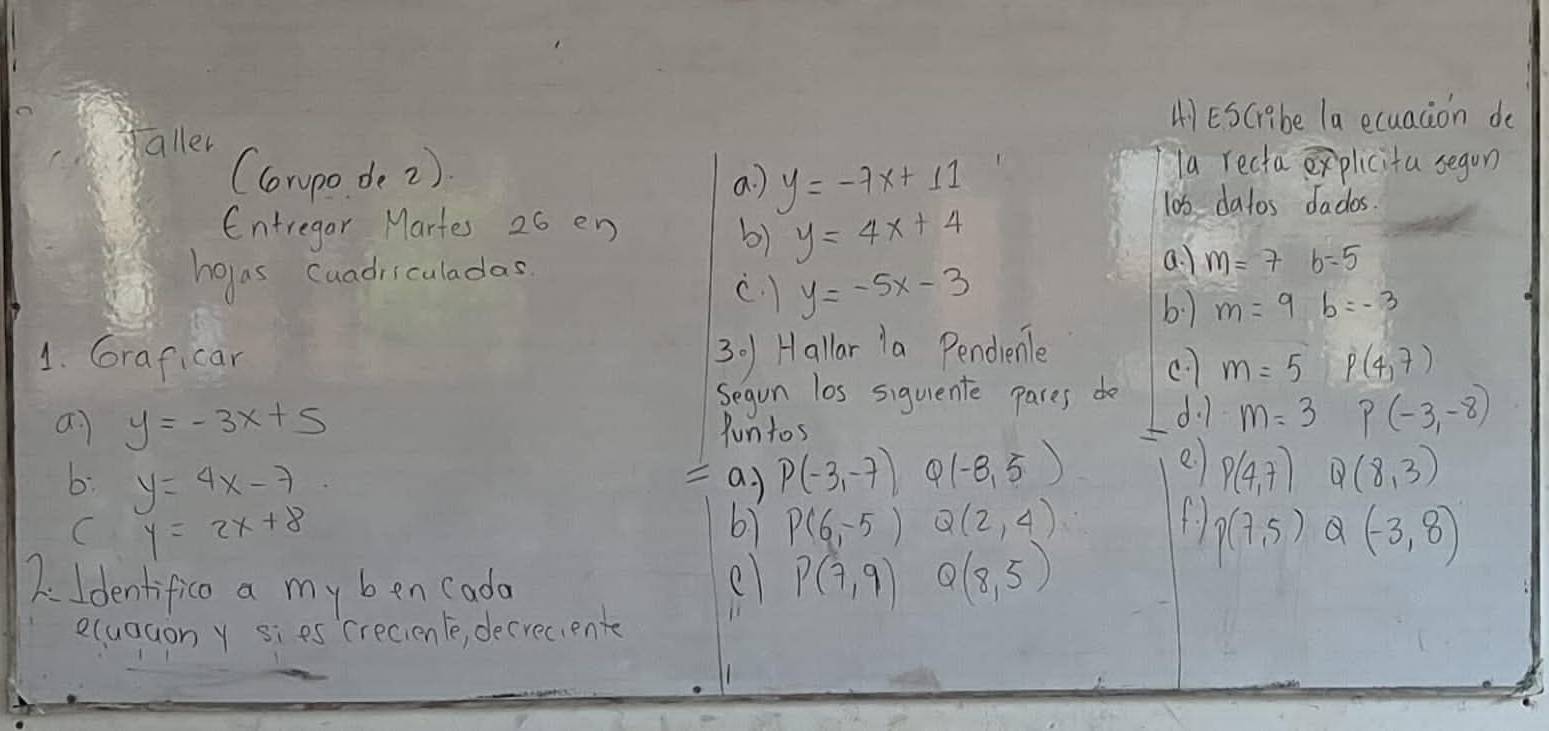 Taller
(Grupo de 2).
Entregar Martes 26 en
hojas cuadriculadas.
1. Graficar
a.) y = -3x+5
b. y = 4x-7.
c y = 2x+8
2. Identifico a m y b en cada
ecuación y si es creciente, decreciente
a.) y = -7x+11
b) y = 4x+4
c.) y = -5x-3
3.) Hallar la Pendiente
Segun los siguiente pares de
Puntos
a.) P(-3,-7) Q(-8,5)
b) P(6,-5) Q(2,4)
c) P(7,9) Q(8,5)
4.) Escribe la ecuación de
la recta explicita segun
los datos dados.
a.) m = 7 b=5
b.) m = 9 b=-3
c.) m = 5 P(4,7)
d.) m = 3 P(-3,-8)
e.) P(4,7) Q(8,3)
f.) p(7,5) Q(-3,8)